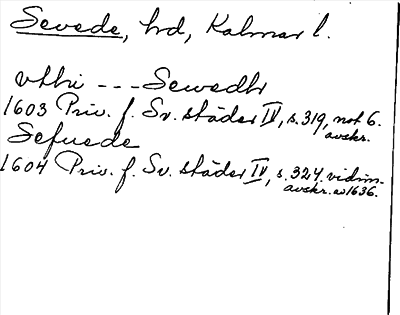 Sevede, hd, Kalmar l.
vthi --- Sewedh
1603 Priv. f. Sv. städer IV, s. 319, not 6.
avskr.
Sefuede
1604 Priv. f. Sv. städer IV, s. 324. vidim.
avskr. av 1636.